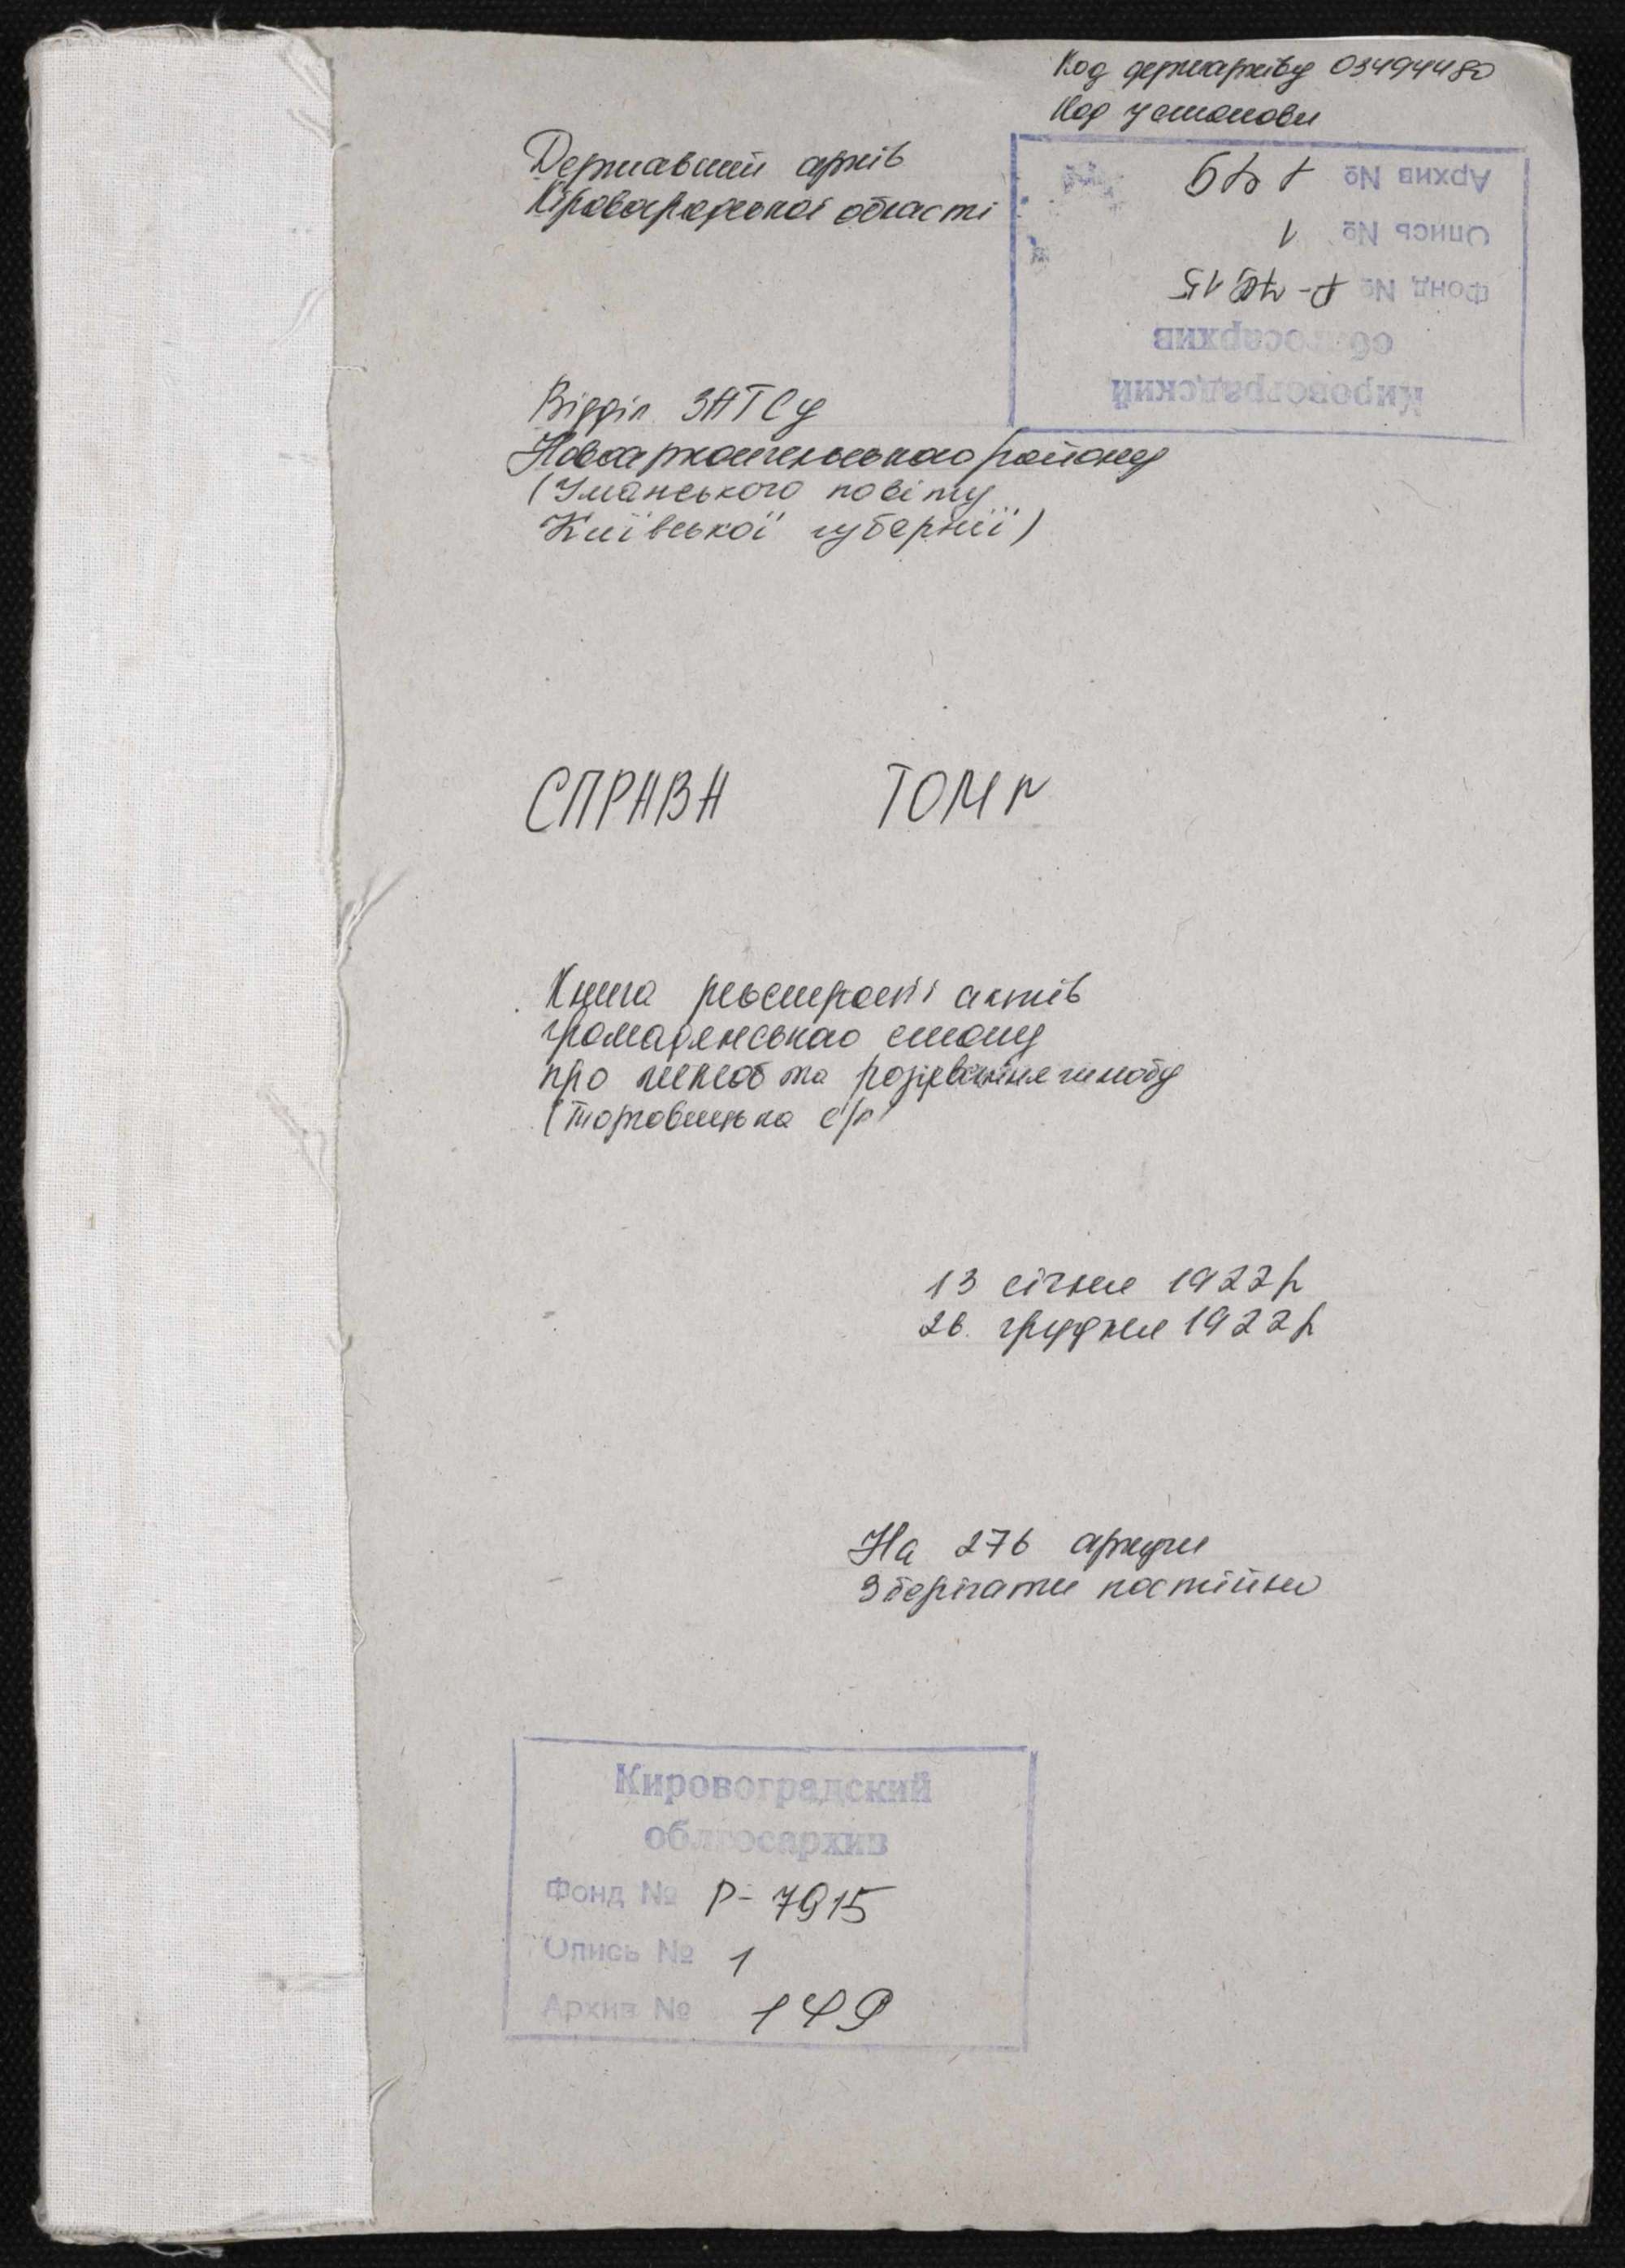 Код держархіву 03494480
Код установи
Державний архів
Кіровоградської області
Архив № 149
Опись № 1
Фонд № Р-7915
облгосархив
Кировоградский
Відділ ЗАГСу
Новоархангельського району
(Уманського повіту
Київської губернії)
СПРАВА ТОМ №
Книга реєстрації актів
громадянського стану
про шлюб та розірвання шлюбу
(Торговицька с/р
13 січня 1922 р
26. грудня 1922 р
На 276 аркуші
Зберігати постійно
Кировоградский
облгосархив
Фонд № Р-7915
Опись № 1
Архив № 149